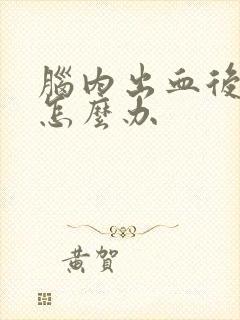 腦內出血後
怎麼办
黃賀